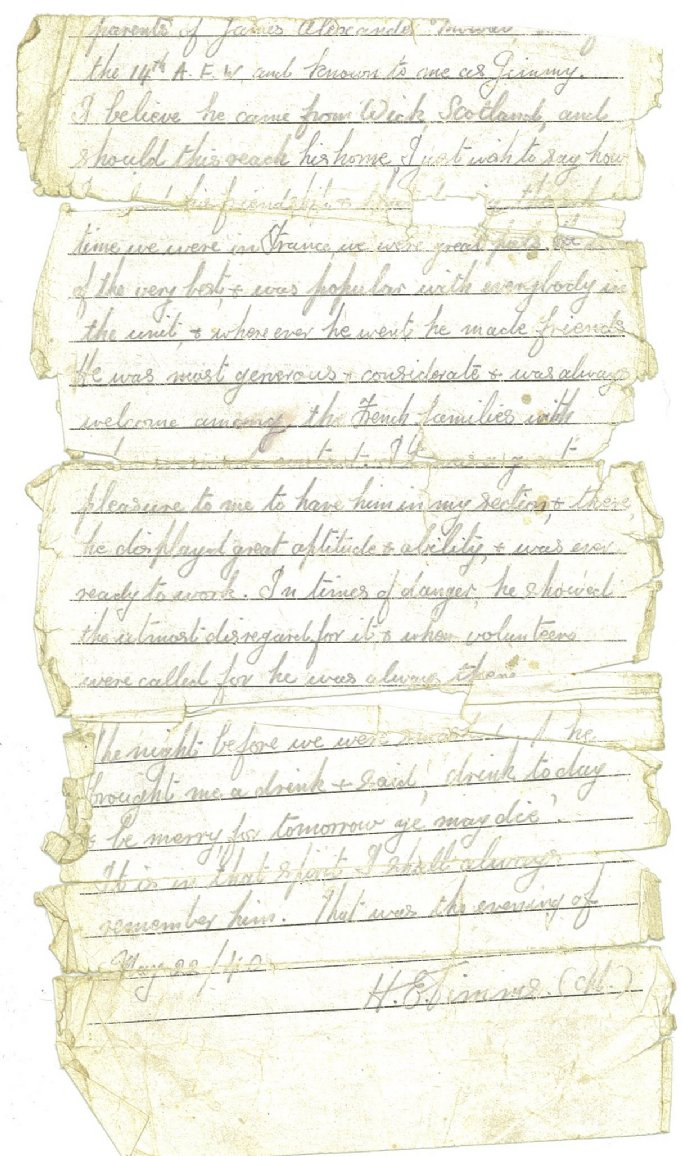 parents of James Alexander
the 14th A. F. W. and known to me as Jimmy.
I believe he came from Wick Scotland, and
should this reach his home, I just wish to say how
his friendship
time we were in France, we were great pals.
of the very best, & was popular with everybody in
the unit, & where ever he went he made friends
He was most generous & considerate & was always
welcome among the French families with
pleasure to me to have him in my section, & there,
he displayed great aptitude & ability, & was ever
ready to work. In times of danger, he showed
the utmost disregard for it & when volunteers
were called for he was always there
The night before we were he
brought me a drink & said, 'drink today
& be merry, for tomorrow ye may die'.
It is in that spirit I shall always
remember him. That was the evening of
May 22/40
H. E. Timms. (M.)